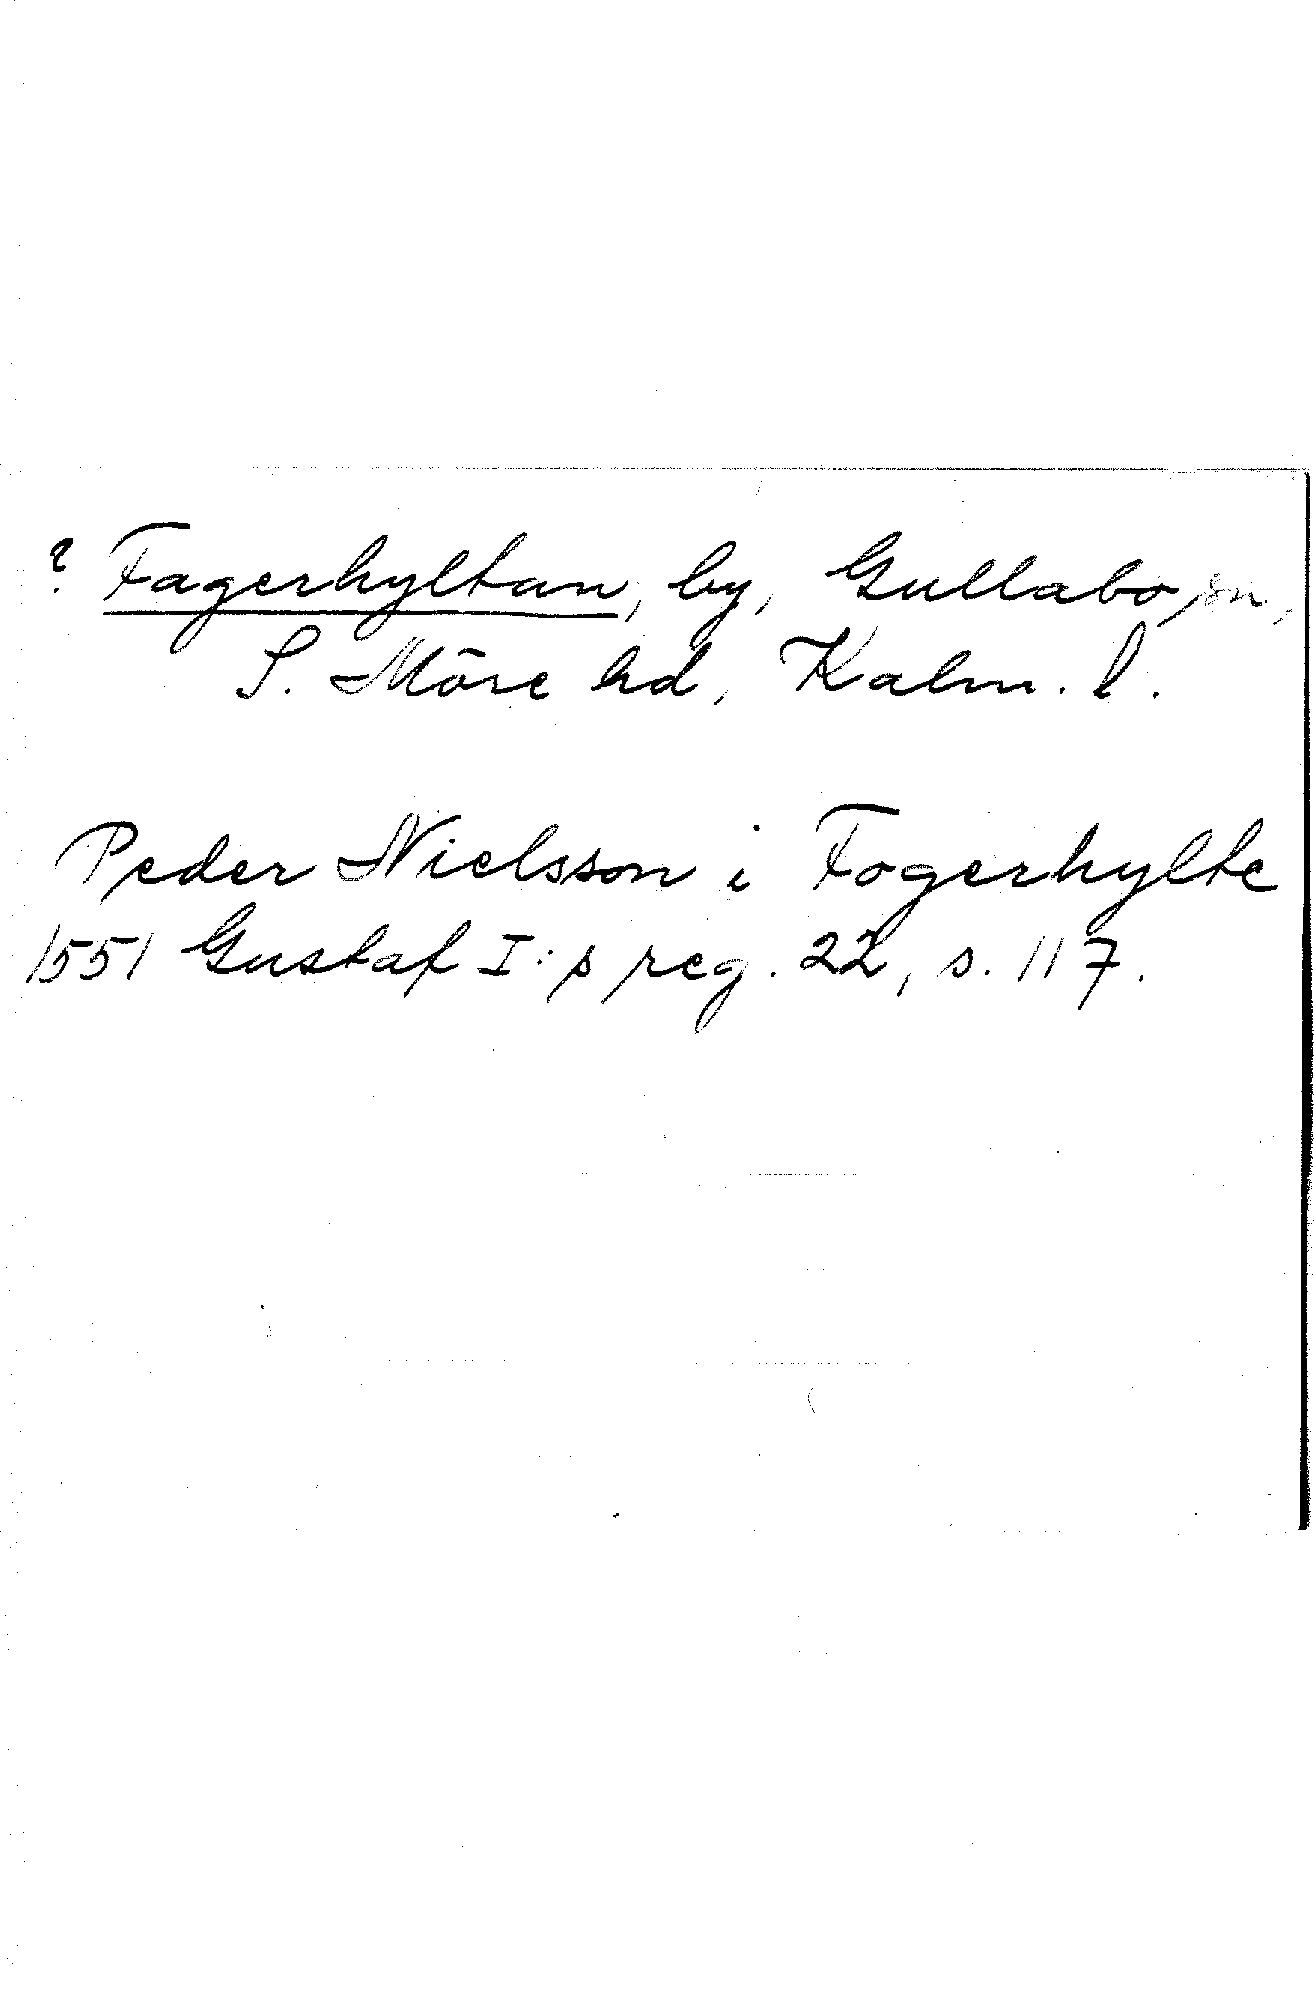 ? Fagerhyltan, by, Gullabo sn,
S. Möre hd, Kalm. l.
Peder Nielsson i Fogerhylte
1551 Gustaf I:s reg. 22, s. 117.